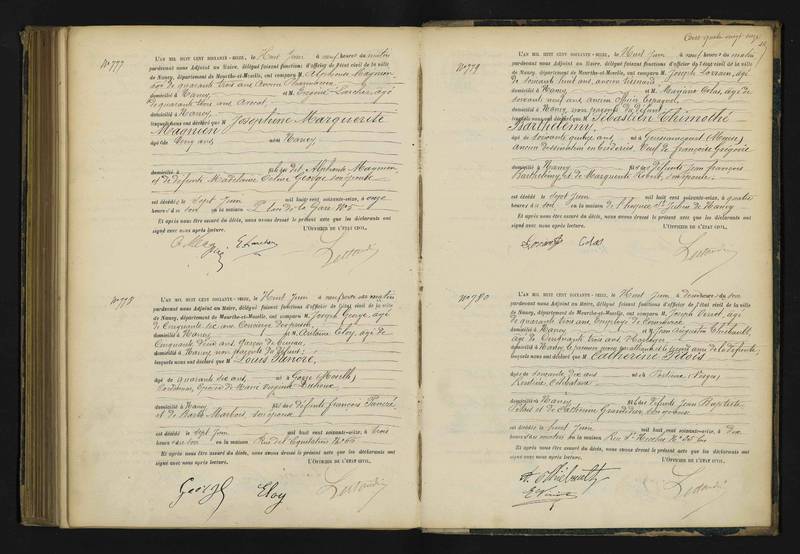 N° 777
L'AN MIL HUIT CENT SOIXANTE-SEIZE, le Huit Juin à neuf heures du matin
pardevant nous Adjoint au Maire, délégué faisant fonctions d'officier de l'état civil de la ville
de Nancy, département de Meurthe-et-Moselle, ont comparu M. Alphonse Magnien
âgé de quarante trois ans Ancien Pharmacien
domicilié à Nancy et M. Eugène Larcher âgé
de quarante trois ans Avocat
domicilié à Nancy
lesquels nous ont déclaré que M Joséphine Marguerite
Magnien
âgée de Cinq ans née à Nancy
fille de Alphonse Magnien
et de défunte Madeleine Celine George son épouse
est décédée le Sept Juin mil huit cent soixante-seize, à onze
heures du soir en sa maison Place de la Gare N° 5
Et après nous être assuré du décès, nous avons dressé le présent acte que les déclarants ont
signé avec nous après lecture. L'OFFICIER DE L'ÉTAT CIVIL,
N° 778
L'AN MIL HUIT CENT SOIXANTE-SEIZE, le Huit Juin à neuf heures du matin
pardevant nous Adjoint au Maire, délégué faisant fonctions d'officier de l'état civil de la ville
de Nancy, département de Meurthe-et-Moselle, ont comparu M. Joseph George, âgé
de Cinquante six ans, Concierge
domicilié à Nancy et M. Antoine Eloy, âgé de
Cinquante deux ans Garçon de bureau
domicilié à Nancy non parents du défunt
lesquels nous ont déclaré que M Louis
âgé de quarante six ans né à Gorze (Moselle)
domicilié à Nancy fils de défunts François
et de Marthe son épouse
est décédé le Sept Juin mil huit cent soixante-seize, à trois
heures du soir en sa maison Rue de l'Equitation N° 60
Et après nous être assuré du décès, nous avons dressé le présent acte que les déclarants ont
signé avec nous après lecture. L'OFFICIER DE L'ÉTAT CIVIL,
George Eloy
N° 779
L'AN MIL HUIT CENT SOIXANTE-SEIZE, le Huit Juin à neuf heures du matin
pardevant nous Adjoint au Maire, délégué faisant fonctions d'officier de l'état civil de la ville
de Nancy, département de Meurthe-et-Moselle, ont comparu M. Joseph Lorrain, âgé
de soixante huit ans, ancien
domicilié à Nancy et M. Mariano Colas, âgé de
soixante neuf ans, ancien officier Espagnol
domicilié à Nancy, non parents du défunt
lesquels nous ont déclaré que M Sébastien Thimothé
Barthelemy
âgé de soixante quinze ans né à (Meuse)
ancien dessinateur en broderies Veuf de Françoise Grégoire
domicilié à Nancy fils de défunts Jean François
Barthelemy et de Marguerite Robert, son épouse
est décédé le Sept Juin mil huit cent soixante-seize, à quatre
heures du soir en sa maison de l'hospice St Julien de Nancy
Et après nous être assuré du décès, nous avons dressé le présent acte que les déclarants ont
signé avec nous après lecture. L'OFFICIER DE L'ÉTAT CIVIL,
Colas
N° 780
L'AN MIL HUIT CENT SOIXANTE-SEIZE, le Huit Juin à deux heures du soir
pardevant nous Adjoint au Maire, délégué faisant fonctions d'officier de l'état civil de la ville
de Nancy, département de Meurthe-et-Moselle, ont comparu M. Joseph
de quarante trois ans Employé de Commerce
domicilié à Nancy et M. Jean Augustin Thiébault
âgé de Cinquante trois ans Horloger
domicilié à Nancy
lesquels nous ont déclaré que M Catherine
âgée de soixante dix ans née à (Vosges)
Rentière Célibataire
domiciliée à Nancy fille de défunts Jean Baptiste
et de Catherine son épouse
est décédée le huit Juin mil huit cent soixante-seize, à
heures du matin en sa maison Rue St Nicolas N° 35 bis
Et après nous être assuré du décès, nous avons dressé le présent acte que les déclarants ont
signé avec nous après lecture. L'OFFICIER DE L'ÉTAT CIVIL,
A. Thiébault